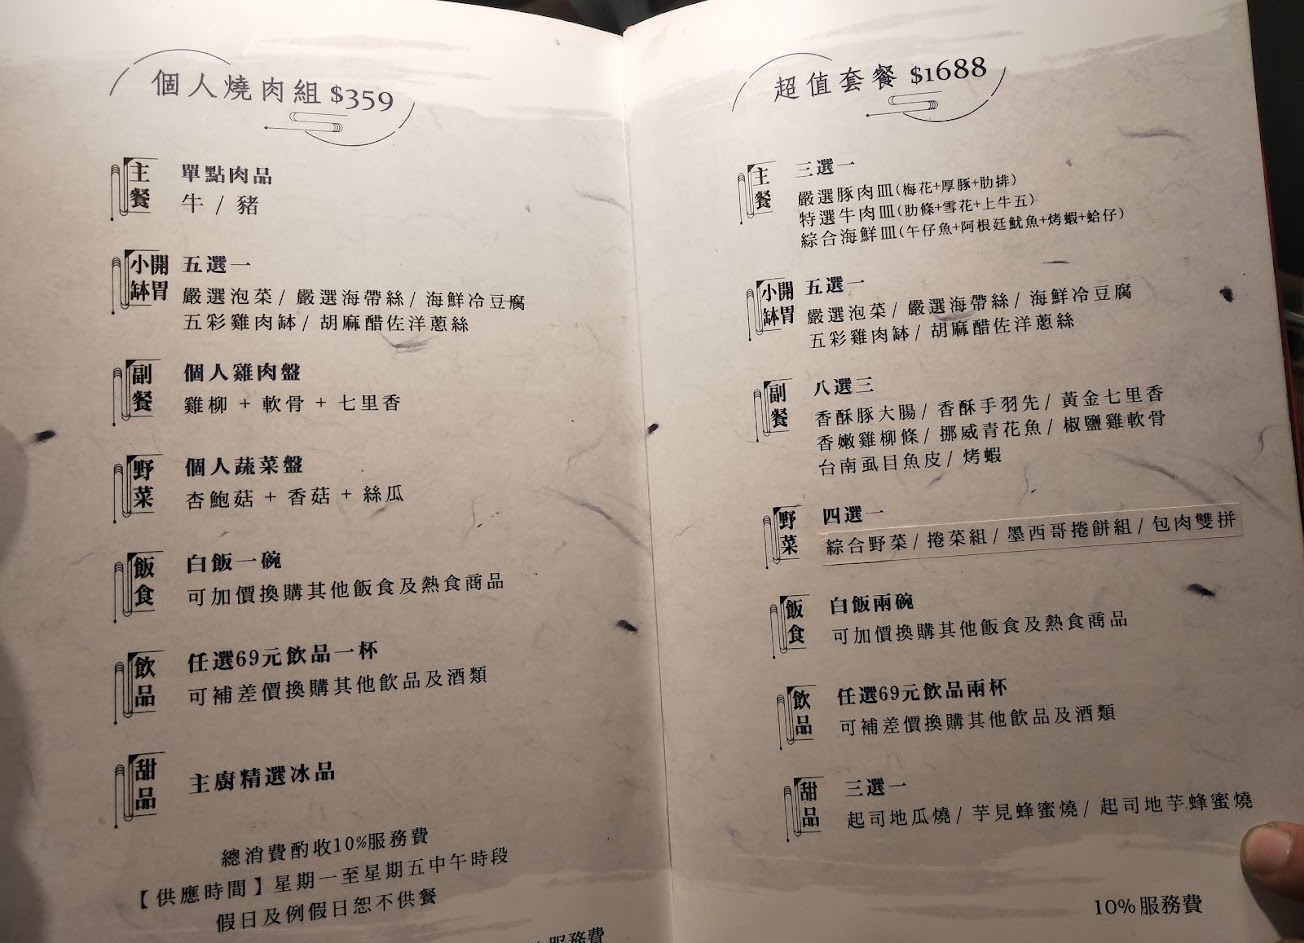 個人燒肉組 $359
主餐
單點肉品
牛 / 豬
開胃小缽
五選一
嚴選泡菜 / 嚴選海帶絲 / 海鮮冷豆腐
五彩雞肉缽 / 胡麻醋佐洋蔥絲
副餐
個人雞肉盤
雞柳 + 軟骨 + 七里香
野菜
個人蔬菜盤
杏鮑菇 + 香菇 + 絲瓜
飯食
白飯一碗
可加價換購其他飯食及熱食商品
飲品
任選69元飲品一杯
可補差價換購其他飲品及酒類
甜品
主廚精選冰品
總消費酌收10%服務費
【供應時間】星期一至星期五中午時段
假日及例假日恕不供餐
%服務費
超值套餐 $1688
主餐
三選一
嚴選豚肉皿(梅花+厚豚+肋排)
特選牛肉皿(肋條+雪花+上牛五)
綜合海鮮皿(午仔魚+阿根廷魷魚+烤蝦+蛤仔)
開胃小缽
五選一
嚴選泡菜 / 嚴選海帶絲 / 海鮮冷豆腐
五彩雞肉缽 / 胡麻醋佐洋蔥絲
副餐
八選三
香酥豚大腸 / 香酥手羽先 / 黃金七里香
香嫩雞柳條 / 挪威青花魚 / 椒鹽雞軟骨
台南虱目魚皮 / 烤蝦
野菜
四選一
綜合野菜 / 捲菜組 / 墨西哥捲餅組 / 包肉雙拼
飯食
白飯兩碗
可加價換購其他飯食及熱食商品
飲品
任選69元飲品兩杯
可補差價換購其他飲品及酒類
甜品
三選一
起司地瓜燒 / 芋見蜂蜜燒 / 起司地芋蜂蜜燒
10%服務費